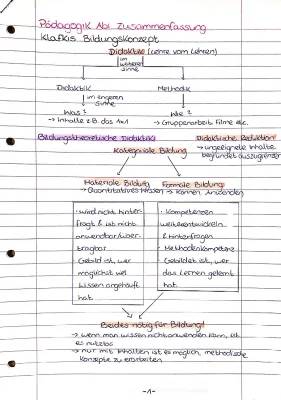 Pädagogik Abi Zusammenfassung
Klafkis Bildungskonzept
Didaktik (Lehre vom Lehren)
im weiteren Sinne
Didaktik Methodik
im engeren Sinne
Was? Wie?
→ Inhalte z.B. das Auf → Gruppenarbeit Filme etc.
Bildungstheoretische Didaktik Didaktische Reduktion
→ ungeeignete Inhalte
begründet auszugrenzen
Kategoriale Bildung
Materiale Bildung Formale Bildung
→ Quantitatives Wissen → Können, Anwenden
- wird nicht hinter-
fragt & ist nicht
anwendbar/über-
tragbar
Gebildet ist, wer
möglichst viel
Wissen angehäuft
hat
- Kompetenzen
weiterentwickeln
& hinterfragen
- Methodenkompetenz
Gebildet ist, wer
das Lernen gelernt
hat
Beides nötig für Bildung!
→ wenn man wissen nicht anwenden kann, ist
es nutzlos
→ nur mit Inhalten ist es möglich, methodische
Konzepte zu erarbeiten
-1-